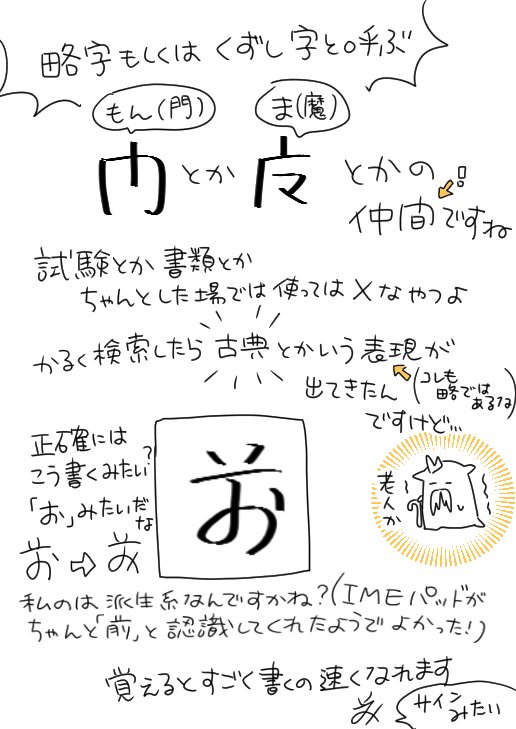 略字もしくはくずし字と呼ぶ
もん(門)
ま(魔)
とか
とかの
仲間ですね!
試験とか書類とか
ちゃんとした場では使っては×なやつよ
かるく検索したら古典とかいう表現が
出てきたんですけど…
(コレも略ではあるな)
正確には
こう書くみたい?
「お」みたいだな
老人か
私のは派生系なんですかね?(IMEパッドが
ちゃんと「前」と認識してくれたようでよかった!)
覚えるとすごく書くの速くなれます
サインみたい